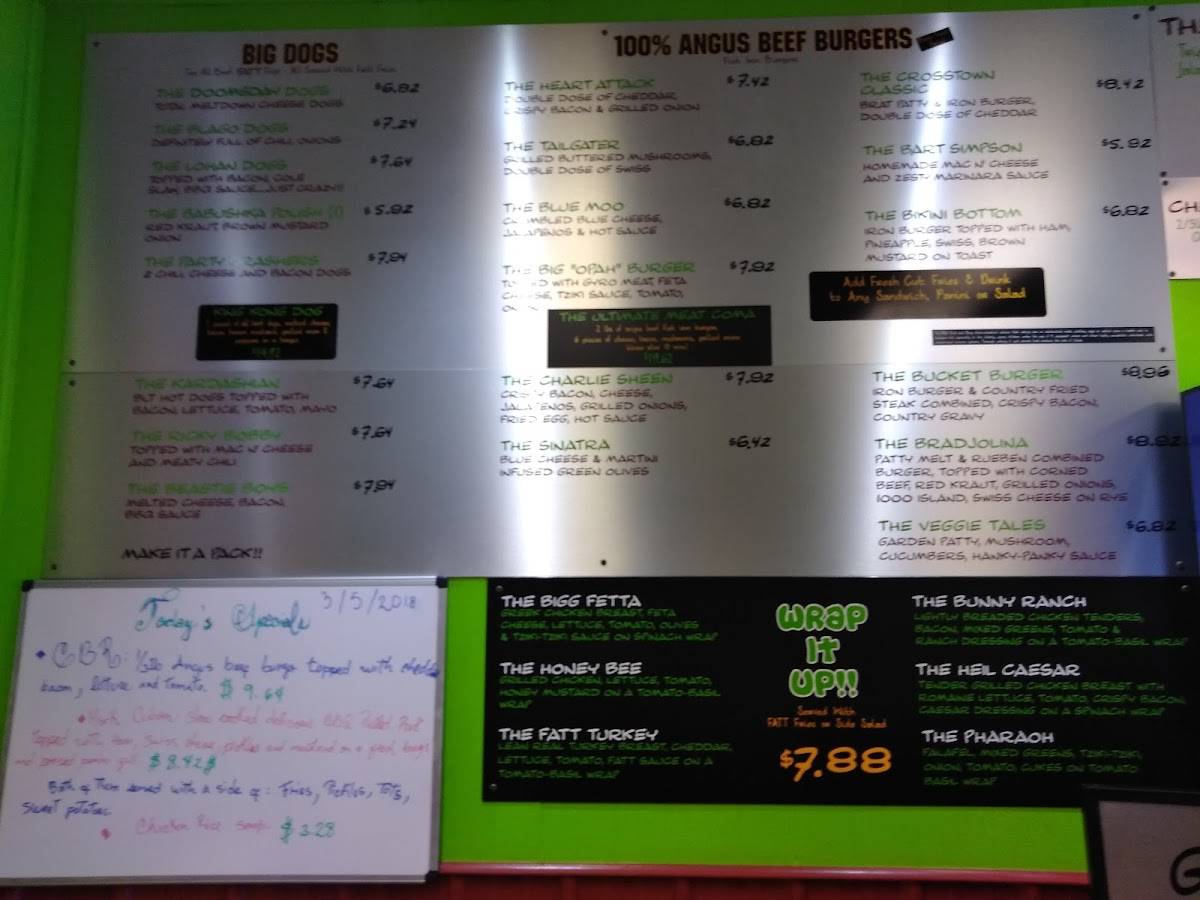 BIG DOGS
THE DOOMSDAY DOGS $6.82
TOTAL MELTDOWN CHEESE DOGS
THE BLAGO DOGS $7.24
DEFINITELY FULL OF CHILI, ONIONS
THE LOHAN DOGS $7.64
TOPPED WITH BACON, COLE
SLAW, BBQ SAUCE...JUST CRAZY!!
THE BABUSHKA POLISH (1) $5.82
RED KRAUT, BROWN MUSTARD
ONION
THE PARTY CRASHERS $7.84
2 CHILI, CHEESE AND BACON DOGS
KING KONG DOG
THE KARDASHIAN $7.64
BUT HOT DOGS TOPPED WITH
BACON, LETTUCE, TOMATO, MAYO
THE RICKY BOBBY $7.64
TOPPED WITH MAC N' CHEESE
AND MEATY CHILI
THE BEASTIE BOYS $7.84
MELTED CHEESE, BACON,
BBQ SAUCE
MAKE IT A PACK!!
100% ANGUS BEEF BURGERS
THE HEART ATTACK $7.42
DOUBLE DOSE OF CHEDDAR,
CRISPY BACON & GRILLED ONION
THE TAILGATER $6.82
GRILLED BUTTERED MUSHROOMS,
DOUBLE DOSE OF SWISS
THE BLUE MOO $6.82
CRUMBLED BLUE CHEESE,
JALAPENOS & HOT SAUCE
THE BIG "OPAH" BURGER $7.92
TOPPED WITH GYRO MEAT, FETA
CHEESE, TZIKI SAUCE, TOMATO,
THE ULTIMATE MEAT COMA
THE CHARLIE SHEEN $7.92
CRISPY BACON, CHEESE,
JALAPENOS, GRILLED ONIONS,
FRIED EGG, HOT SAUCE
THE SINATRA $6.42
BLUE CHEESE & MARTINI
INFUSED GREEN OLIVES
THE CROSSTOWN
CLASSIC $8.42
BRAT PATTY & IRON BURGER,
DOUBLE DOSE OF CHEDDAR
THE BART SIMPSON $5.92
HOMEMADE MAC N' CHEESE
AND ZESTY MARINARA SAUCE
THE BIKINI BOTTOM $6.82
IRON BURGER TOPPED WITH HAM,
PINEAPPLE, SWISS, BROWN
MUSTARD ON TOAST
Add Fresh Cut Fries & Drink
to Any Sandwich, Panini or Salad
THE BUCKET BURGER $8.96
IRON BURGER & COUNTRY FRIED
STEAK COMBINED, CRISPY BACON,
COUNTRY GRAVY
THE BRADJOLINA $8.82
PATTY MELT & RUEBEN COMBINED
BURGER, TOPPED WITH CORNED
BEEF, RED KRAUT, GRILLED ONIONS,
1000 ISLAND, SWISS CHEESE ON RYE
THE VEGGIE TALES $6.82
GARDEN PATTY, MUSHROOM,
CUCUMBERS, HANKY-PANKY SAUCE
Today's Specials 3/5/2018
CBR: 1/3 lb Angus beef burger topped with cheddar
bacon, lettuce and tomato. $9.64
slow cooked delicious BBQ Pulled Pork
topped with ham, swiss cheese, pickles and mustard on a
$8.42
Both of Them served with a side of: Fries, Tots,
sweet potatoes
Chicken Rice soup $3.28
THE BIGG FETTA
GREEK CHICKEN BREAST, FETA
CHEESE, LETTUCE, TOMATO, OLIVES
& TZIKI-TZIKI SAUCE ON SPINACH WRAP
THE HONEY BEE
GRILLED CHICKEN, LETTUCE, TOMATO,
HONEY MUSTARD ON A TOMATO-BASIL
WRAP
THE FATT TURKEY
LEAN REAL TURKEY BREAST, CHEDDAR,
LETTUCE, TOMATO, FATT SAUCE ON A
TOMATO-BASIL WRAP
WRAP
IT
UP!!
Served With
FATT Fries or Side Salad
$7.88
THE BUNNY RANCH
LIGHTLY BREADED CHICKEN TENDERS,
BACON, MIXED GREENS, TOMATO &
RANCH DRESSING ON A TOMATO-BASIL WRAP
THE HEIL CAESAR
TENDER GRILLED CHICKEN BREAST WITH
ROMAINE LETTUCE, TOMATO, CRISPY BACON,
CAESAR DRESSING ON A SPINACH WRAP
THE PHARAOH
FALAFEL, MIXED GREENS, TZIKI-TZIKI,
ONION, TOMATO, CUKES ON TOMATO
BASIL WRAP